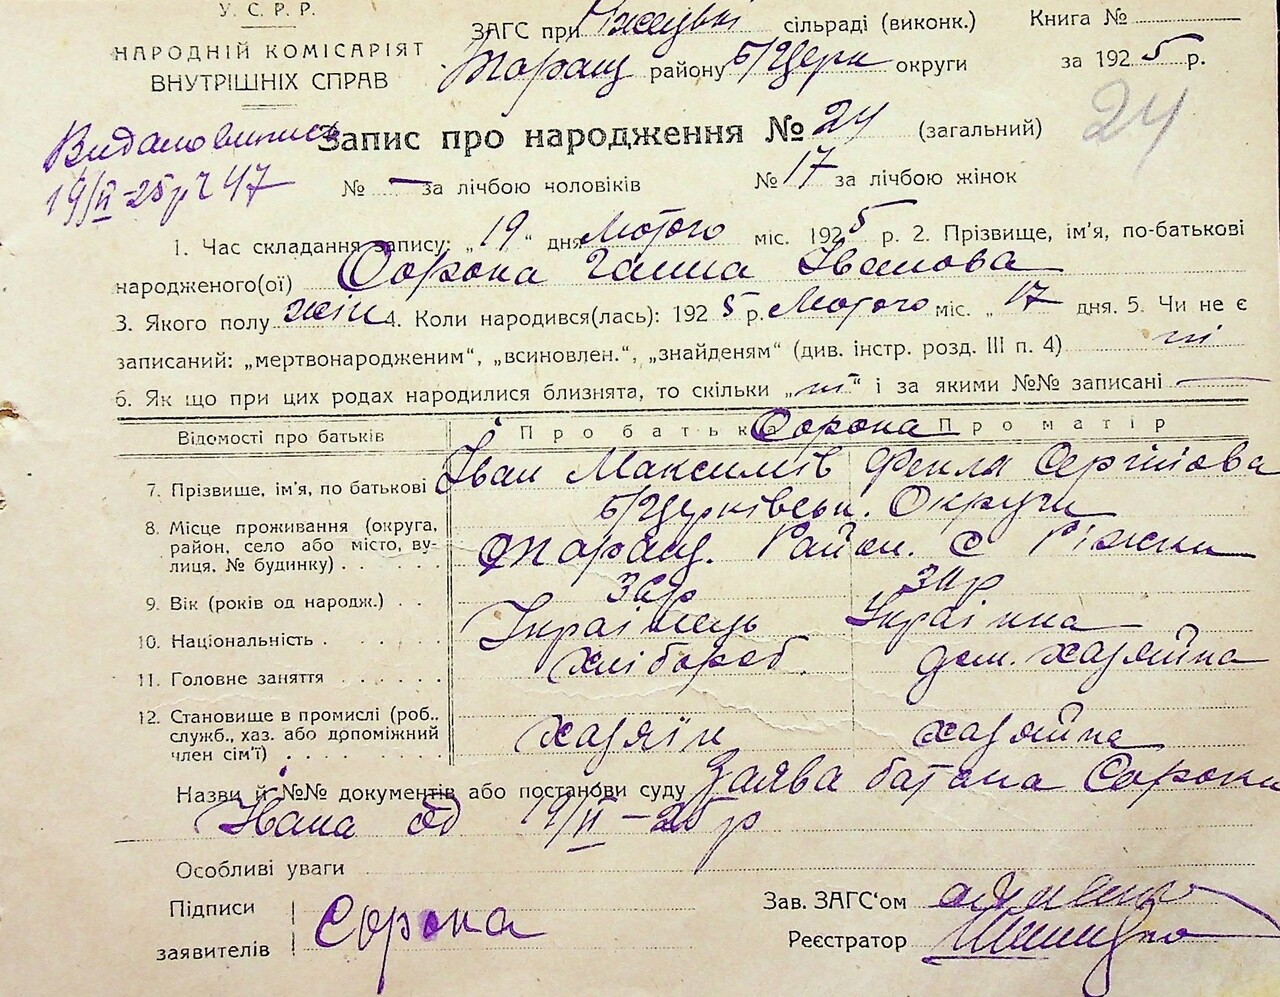 У. С. Р. Р.
НАРОДНІЙ КОМІСАРІЯТ
ВНУТРІШНІХ СПРАВ
ЗАГС при сільраді (виконк.)
Таращ району Б/Церк округи
Книга №
за 1925 р.
Видано виписъ
19/II-25р № 47
Запис про народження № 24 (загальний)
24
№ — за лічбою чоловіків № 17 за лічбою жінок
1. Час складання запису: „19“ дня Лютого міс. 1925 р. 2. Прізвище, ім'я, по-батькові
народженого(ої) Сорока Ганна Іванова
3. Якого полу жін 4. Коли народився(лась): 1925 р. Лютого міс. „17 дня. 5. Чи не є
записаний: „мертвонародженим“, „всиновлен.“, „знайденям“ (див. інстр. розд. III п. 4) ні
6. Як що при цих родах народилися близнята, то скільки „ні“ і за якими №№ записані —
Відомості про батьків Про батька Сорока Про матір
7. Прізвище, ім'я, по батькові Іван Максимів Фекла Сергійова
8. Місце проживання (округа, район, село або місто, вулиця, № будинку) Б/Церківськ. Округи
Таращ. Район. с Ріжки
9. Вік (років од народж.) 36р 3
10. Національність Українець Українка
11. Головне заняття Хлібороб дом. хазяйка
12. Становище в промислі (роб., служб., хаз. або допоміжний член сім'ї) хазяїн хазяйка
Назви й №№ документів або постанови суду Заява батька Сороки
Івана од 19/II-25р
Особливі уваги
Підписи заявителів Сорока
Зав. ЗАГС'ом
Реєстратор